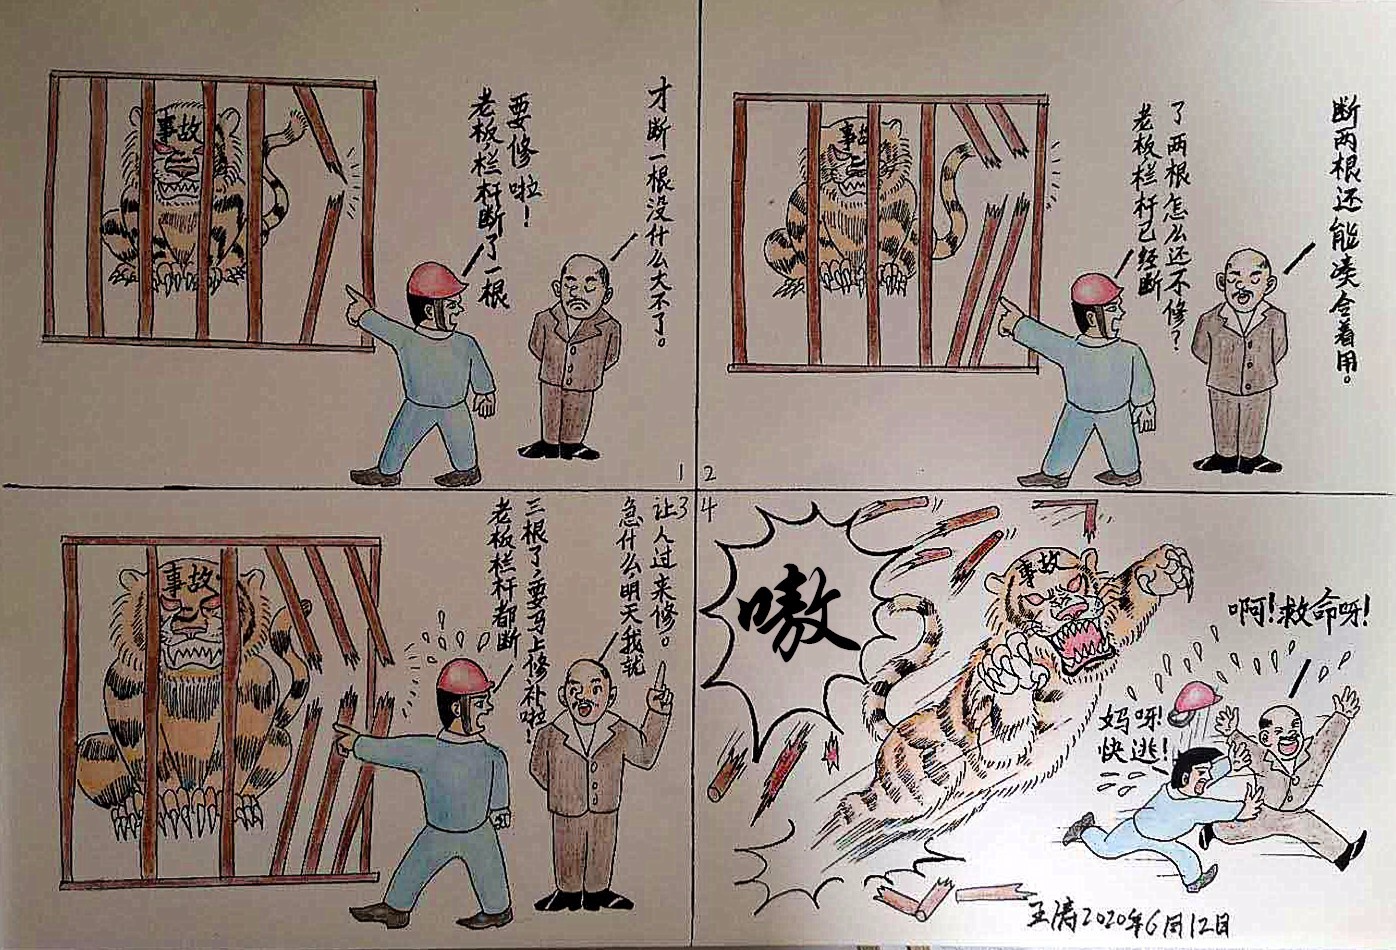 事故
老板栏杆断了一根
要修啦！
才断一根没什么大不了。
1
事故
老板栏杆已经断
了两根怎么还不修？
断两根还能凑合着用。
2
事故
老板栏杆都断
三根了，要马上修补啦！
急什么，明天我就
让人过来修。
3
4
嗷
事故
啊！救命呀！
妈呀！
快逃！
王涛2020年6月12日